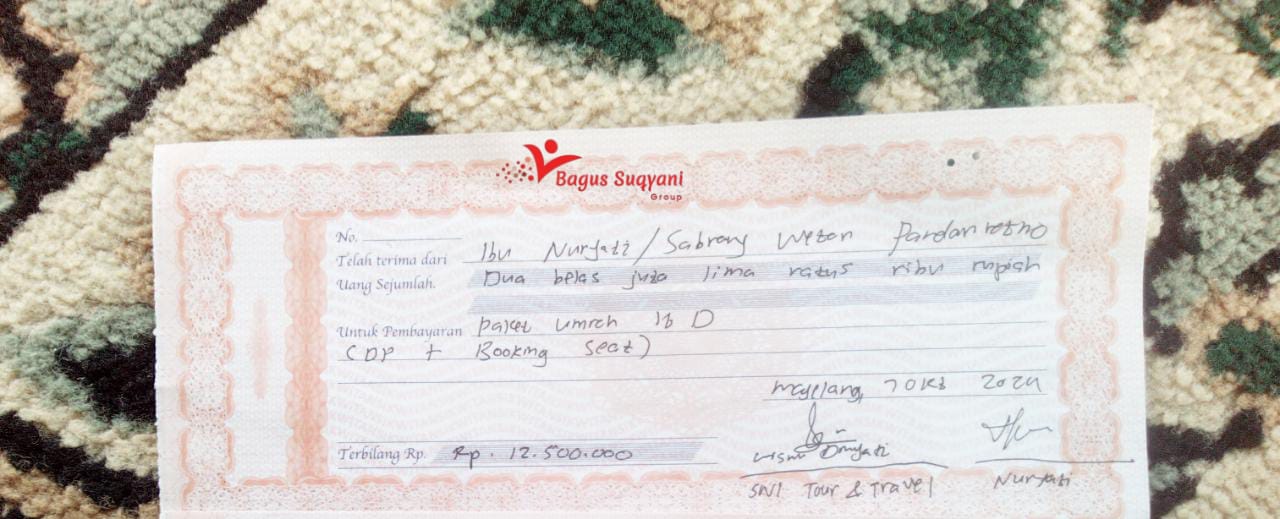 Bagus Suqyani
Group
No.
Telah terima dari Ibu Nuryati / Sabrang Wetan Pandanretno
Uang Sejumlah. Dua belas juta lima ratus ribu rupiah
Untuk Pembayaran paket umroh 16 D
(DP + Booking seat)
Magelang, 7 Okt 2024
Terbilang Rp. Rp. 12.500.000
SNI Tour & Travel Nuryati